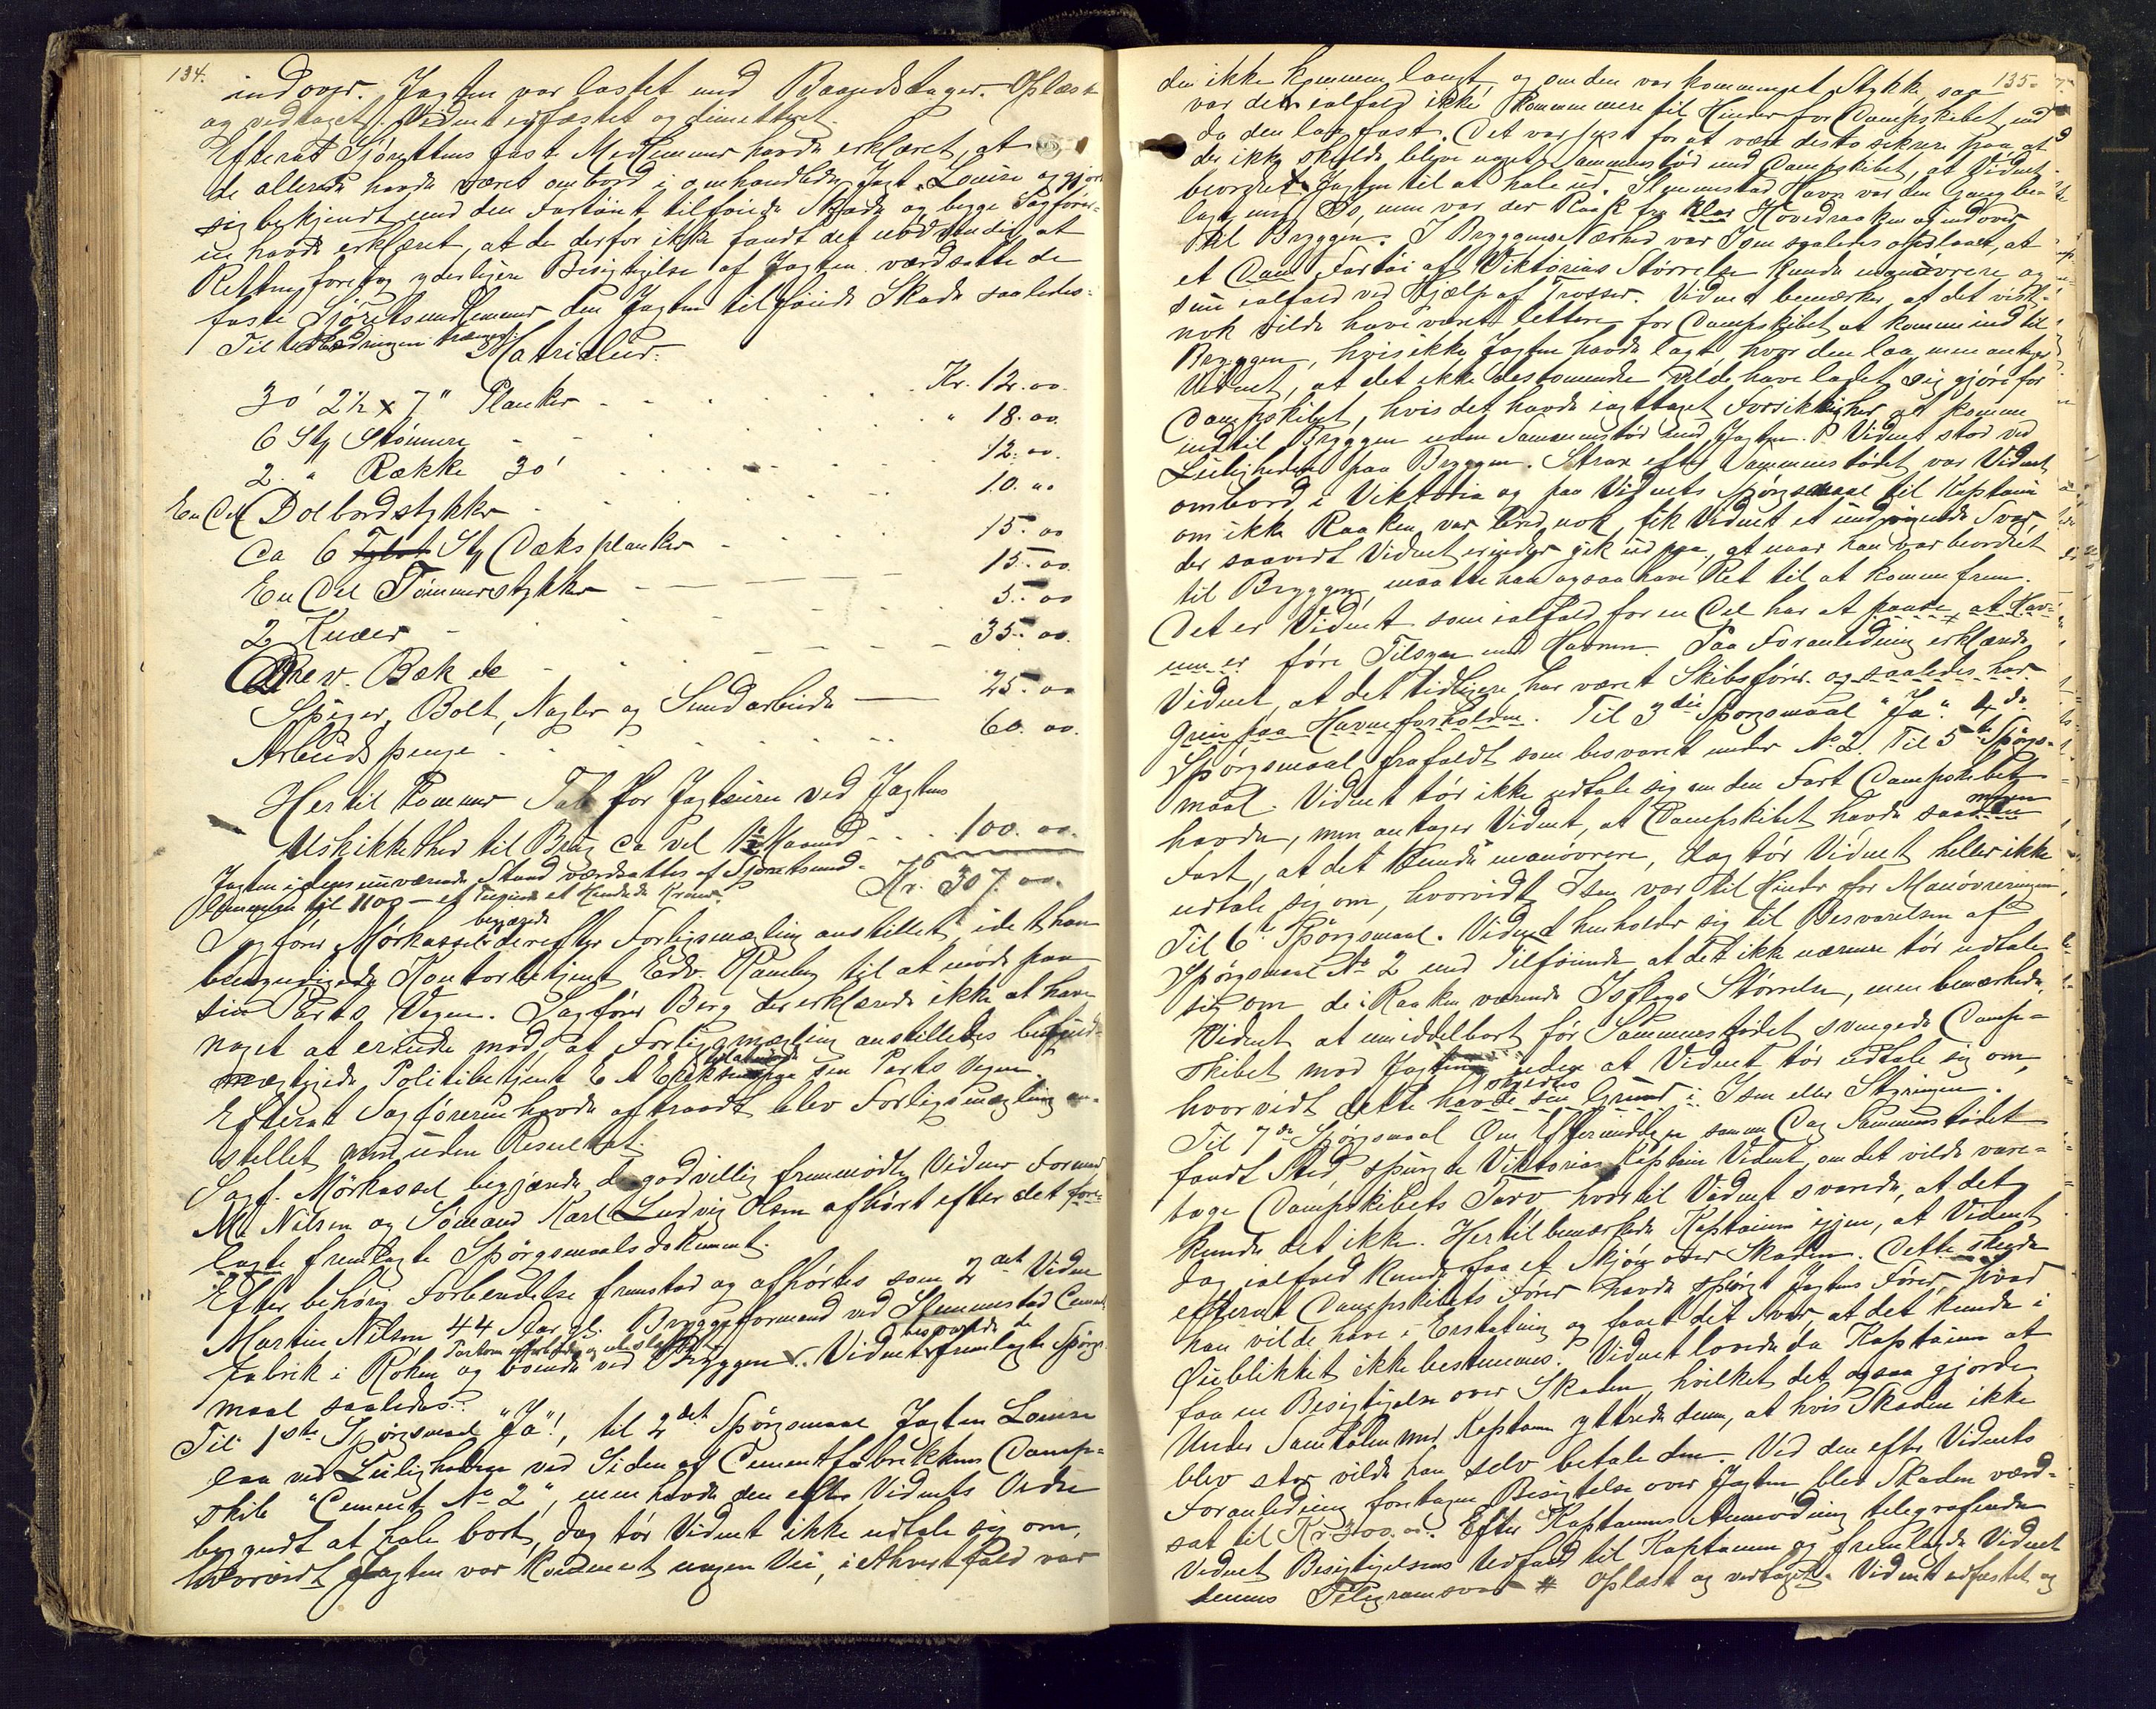 134.
indover. Jagten var lastet med Baandstager. Oplæst
og vedtaget. Vidnet edfæstet og dimitteret.
Efterat Sjørettens faste Medlemmer havde erklæret, at
de allerede havde været ombord i omhandlede Jagt "Louise" og gjort
sig bekjendt med den Fartøiet tilføiede Skade og begge Sagfører-
ne havde erklæret, at de derfor ikke fandt det nødvendig at
Retten foretog yderligere Besigtigelse af Jagten værdsatte de
faste Sjøretsmedlemmer den Jagten tilføiede Skade saaledes:
Til Udbedringen trænges:
Matrialier:
30' 2½ x 7" Planker - - Kr. 12.00.
6 Stk Stønnere - - " 18.00.
2 " Række 30' 12.00.
En Del Dolbordstykker 10.00
Ca 6 Stk Dæksplanker 15.00
En Del Tømmerstykker 15.00.
2 Knæer 5.00
Drev. Bæk etc 35.00.
Spiger, Bolt, Nagler og Smedarbeide 25.00
Arbeidspenge 60.00.
Hertil kommer Tab for Jagteieren ved Jagtens
Uskikkethed til Brug ca vel 1½ Maaned - - - 100.00.
Kr. 307.00.
Jagten i dens nuværende Stand værdsattes af Sjøretsmed-
lemmerne til 1100 - et Tusinde et Hundrede Kroner.
begjærede
Sagfører Mørkassel derefter Forligsmægling anstillet idet han
bemyndigede Kontorbetjent Edv. Ramberg til at møde paa
sin Parts Vegne. Sagfører Berg der erklærede ikke at have
noget at erindre mod, at Forligsmægling anstilledes befuld-
mægtigede Politibetjent E A Eriksen paa sin Parts Vegne.
Efterat Sagførerne havde aftraadt blev Forligsmægling an-
stillet men uden Resultat.
Sagf. Mørkassel begjærede de godvillig fremmødte Vidner Formand
M. Nilsen og Sømand Karl Ludvig Olsen afhørt efter det fore-
lagte fremlagte Spørgsmaalsdokument.
Efter behørig Forberedelse fremstod og afhørtes som 2det Vidne
Martin Nilsen 44 Aar gl. Bryggeformand ved Slemmestad Cement-
fabrik i Røken og boende ved Bryggen. Vidnet besvarede de fremlagte Spørgs-
maal saaledes:
Til 1ste Spørgsmaal "Ja"!, til 2det Spørgsmaal Jagten Louise
laa ved Leiligheden ved Siden af Cementfabrikkens Damp-
skib "Cement No 2", men havde den efter Vidnets Ordre
begyndt at hale bort, dog tør Vidnet ikke udtale sig om,
hvorvidt Jagten var kommet nogen Vei, i ethvert fald var
135.
den ikke kommen langt og om den var kommen et Stykke, saa
var den ialfald ikke kommen mere til Hinder for Dampskibet, end
da den laa fast. Det var just for at være desto sikrere paa at
der ikke skulde blive noget Sammenstød med Dampskibet, at Vidnet
beordret Jagten til at hale ud. Slemmestad Havn var den Gang be-
lagt med Is, men var der Raak fra klar Hovedraaken og indover
til Bryggen. I Bryggens Nærhed var Isen saaledes opslaaet, at
et Damp Fartøi af Viktorias Størrelse kunde manøvrere og
snu ialfald ved Hjælp af Trosser. Vidnet bemærker, at det vist-
nok vilde have været lettere for Dampskibet at komme ind til
Bryggen, hvis ikke Jagten havde lagt, hvor den laa, men antager
Vidnet, at det ikke destomindre vilde have ladet sig gjøre for
Dampskibet, hvis det havde iagttaget Forsiktighed, at komme
ind til Bryggen uden Sammenstød med Jagten. Vidnet stod ved
Leiligheden paa Bryggen. Strax efter Sammenstødet var Vidnet
ombord i Viktoria og paa Vidnets Spørgsmaal til Kaptein
om ikke Raaken var bred nok, fik Vidnet et undvigende Svar,
der saavidt Vidnet erindrer gik ud paa, at naar han var beordret
til Bryggen, maatte han ogsaa have Ret til at komme frem.
Det er Vidnet som ialfald for en Del har at passe, at Hav-
nen er føre Tilsyn med Havnen. Paa Foranledning erklærede
Vidnet, at det tidligere har været Skibsfører og saaledes har
Grein paa Havneforholdene. Til 3die Spørgsmaal "Ja". 4de
Spørgsmaal frafaldt som besvaret under No 2. Til 5te Spørgs-
maal. Vidnet tør ikke udtale sig om den Fart Dampskibet
havde, men antager Vidnet, at Dampskibet havde saa megen
Fart, at det kunde manøvrere, dog tør Vidnet heller ikke
udtale sig om, hvorvidt Isen var til Hinder for Manøvreringen
Til 6te Spørgsmaal. Vidnet henholder sig til Besvarelsen af
Spørgsmaal No 2 med Tilføiende at det ikke nærmere tør udtale
sig om de i Raaken værende Isflags Størrelse, men bemærkede
Vidnet at umiddelbart før Sammenstødet svingede Damp-
skibet mod Jagten uden at Vidnet tør udtale sig om,
hvorvidt dette havde sin Grund i Isen eller Styringen.
Til 7de Spørgsmaal Om Eftermiddagen samme Dag Sammenstødet
fandt Sted, spurgte Viktorias Kaptein Vidnet, om det vilde vare-
tage Dampskibets Tarv, hvortil Vidnet svarede, at det
kunde det ikke. Hertil bemærkede Kapteinen igjen, at Vidnet
dog ialfald kunde faa et Skjøn over Skaden. Dette skede
efterat Dampskibets Fører havde spurgt Jagtens Fører, hvad
han vilde have i Erstatning og faaet det Svar, at det kunde i
Øieblikket ikke bestemmes. Vidnet lovede da Kapteinen at
faa en Besigtigelse over Skaden, hvilket det ogsaa gjorde.
Under Samtalen med Kapteinen yttrede denne, at hvis Skaden ikke
blev stor vilde han selv betale den. Ved den efter Vidnets
Foranledning foretagne Besigtelse over Jagten, blev Skaden værd-
sat til Kr 300.00. Efter Kapteinens Anmodning telegraferede
Vidnet Besigtigelsens Udfald til Kapteinen og fremlagde Vidnet
dennes Telegramsvar # Oplæst og vedtaget. Vidnet edfæstet og